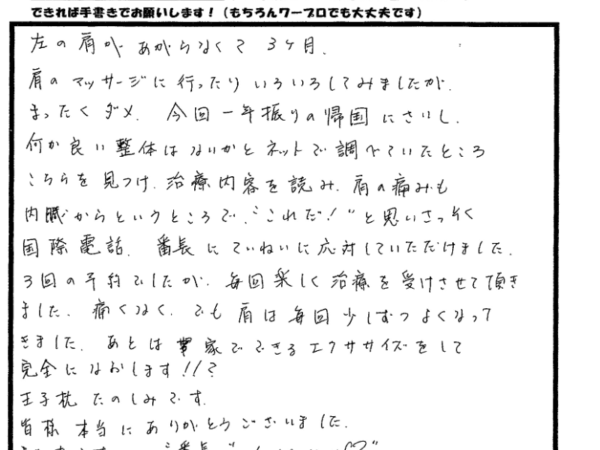 できれば手書きでお願いします！（もちろんワープロでも大丈夫です）
左の肩が あがらなくて 3ヶ月.
肩の マッサージに 行ったり いろいろしてみましたが.
まったく ダメ. 今回 一年振りの 帰国 にさいし.
何か良い 整体は ないかと ネットで 調べていたところ
こちらを 見つけ. 治療内容を 読み. 肩の痛みも
内臓からというところで. “これだ！” と思い さっそく
国際電話. 番長に ていねいに 応対していただけました.
3回の予約でしたが. 毎回楽しく 治療を 受けさせて頂き
ました. 痛くなく. でも 肩は 毎回 少しずつ よくなって
きました. あとは 家でできる エクササイズをして
完全になおします!!?
王子枕 たのしみです.
皆様 本当に ありがとうございました.